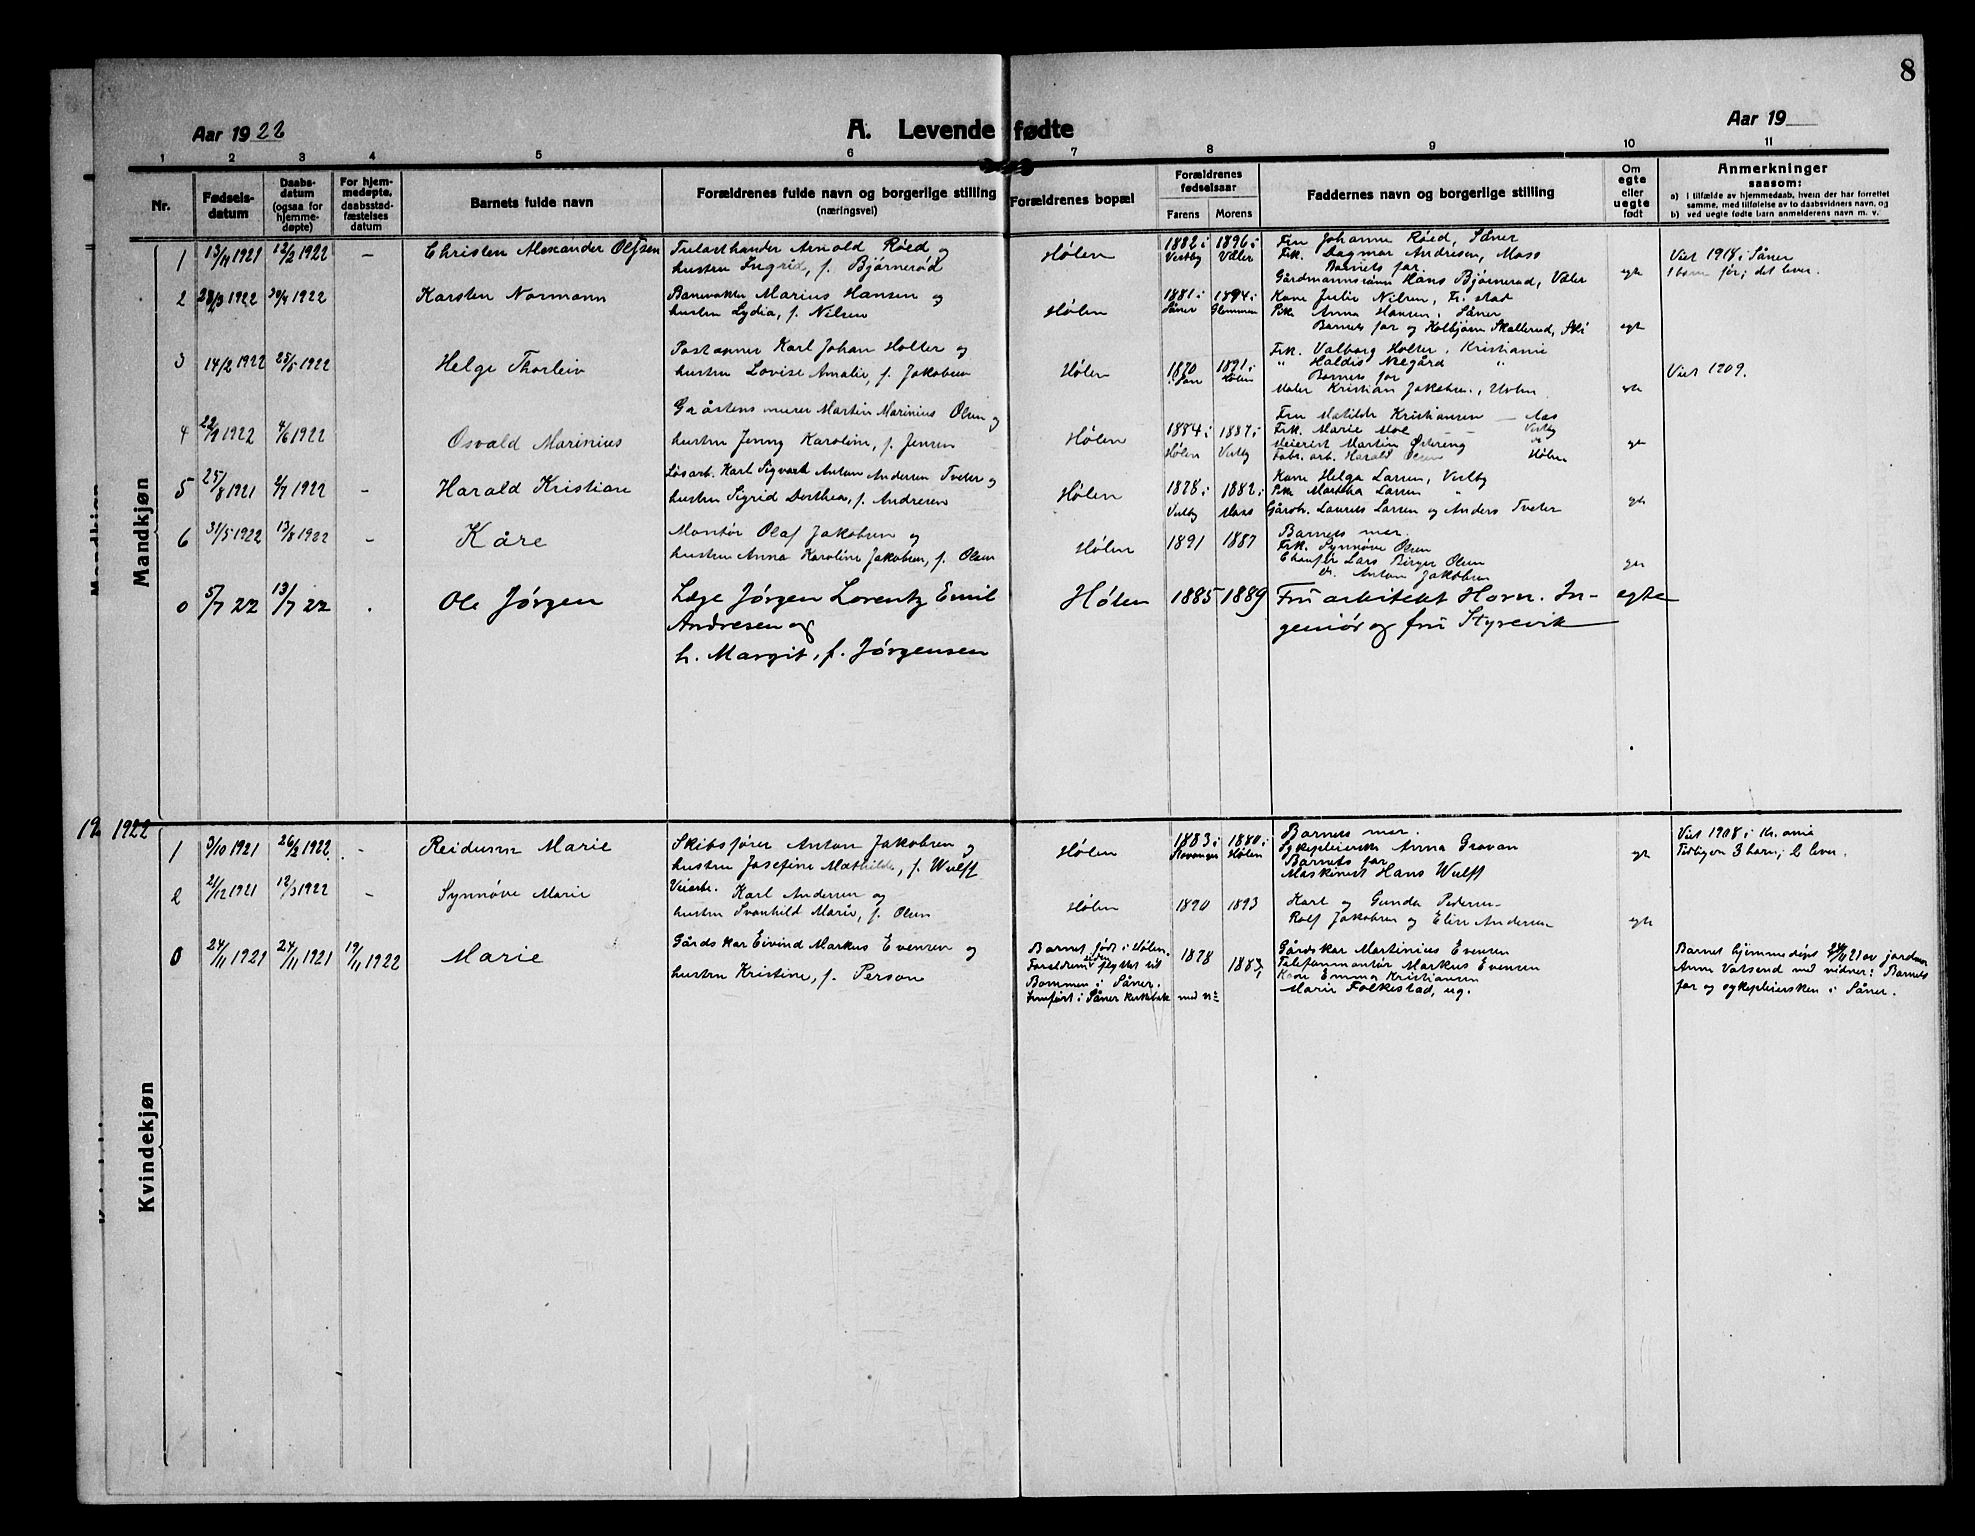 8
Aar 1922
A. Levende fødte
Aar 19
1 2 3 4 5 6 7 8 9 10 11
Nr.
Fødselsdatum
Daabsdatum (ogsaa for hjemmedøpte)
For hjemmedøpte, daabsstadfæstelses datum
Barnets fulde navn
Forældrenes fulde navn og borgerlige stilling
(næringsvei)
Forældrenes bopæl
Forældrenes fødselsaar
Farens Morens
Faddernes navn og borgerlige stilling
Om egte eller uegte født
Anmerkninger
saasom:
a) i tilfælde av hjemmedaab, hvem der har forrettet
samme, med tilføielse av to daabsvidners navn, og
b) ved uegte fødte barn anmelderens navn m. v.
Mandkjøn
1 13/11 1921 12/2 1922 – Christen Alexander Trelasthandler Arnold Røed og
hustru Ingrid, f. Bjørnerød
Hølen 1882 i Vestby 1896 i Våler
Fru Johanne Røed, Såner
Frk. Dagmar Andresen, Moss
Barnets far.
Gårdmannssønn Hans Bjørnerød, Våler
egte
Viet 1918 i Såner
1 barn før; det lever.
2 28/3 1922 30/4 1922 Karsten Normann Banevokter Marius Hansen og
hustru Lydia, f. Nilsen
Hølen 1881 i Såner 1894 i Glemmen
Kone Julie Nilsen, Fr.stad
Pike Anna Hansen, Såner
Barnets far og Kolbjørn Skallerud, Ski
egt
3 14/2 1922 25/5 1922 Helge Thorleiv Poståpner Karl Johan Holter og
hustru Lovise Amalie, f. Jakobsen
Hølen 1870 1891 i Hølen
Frk. Valborg Holter, Kristiania
" Haldis Negård "
Barnets far
Maler Kristian Jakobsen, Hølen
egte
Viet 1909.
4 1922 4/6 1922 Osvald Marinius Gråstensmurer Martin Marinius Olsen og
hustru Jenny Karoline, f. Jensen
Hølen 1884 i Hølen 1887 i Vestby
Fru Matilde Kristiansen – Aas
Frk. Marie Moe – Vestby
Meierist Martin Østreng
Fabr. arb. Harald Olsen Hølen
egt
5 25/8 1921 2/7 1922 – Harald Kristian Løsarb. Karl Sigvart Anton Andersen Tveter og
hustru Sigrid Dorthea, f. Andresen
Hølen 1878 i Vestby 1882 i Moss
Kone Helga Larsen, Vestby
Pike Martha Larsen "
Gårdbr. Laurits Larsen og Anders Tveter
egte
6 31/5 1922 13/8 1922 – Kåre Montør Olaf Jakobsen og
hustru Anna Karoline Jakobsen, f. Olsen
Hølen 1891 1887
Barnets mor.
Frk. Synnøve Olsen
Chauffør Lars Birger Olsen
Anton Jakobsen
0 5/7 22 13/7 22 . Ole Jørgen Læge Jørgen Lorentz Emil
Andresen og
h. Margit, f. Jørgensen
Hølen 1885 1889 Fru arkitekt Horn. In-
geniør og fru Styrevik
egte
1922
Kvindekjøn
1 3/10 1921 26/2 1922 – Reidunn Marie Skibsfører Anton Jakobsen og
hustru Josefine Mathilde, f. Wulff
Hølen 1883 i Stavanger 1880 i Hølen
Barnets mor.
Sykepleierske Anna Gravan
Barnets far
Maskinist Hans Wulff
egt
Viet 1908 i Kr.ania
Tidligere 3 barn; 2 lever.
2 21/12 1921 12/3 1922 – Synnøve Marie Veiarb. Karl Andersen og
hustru Svanhild Marie, f. Olsen
Hølen 1890 1893
Karl og Gunda Pedersen
Rolf Jakobsen og Elise Andersen
egte
0 24/11 1921 24/11 1921 19/11 1922 Marie Gårdskar Eivind Markus Evensen og
hustru Kristine, f. Person
Barnet født i Hølen.
Foreldrene siden flyttet til
Bommen i Såner.
Innført i Såner kirkebok med nr.
1878 1883
Gårdskar Martinius Evensen
Telefonmontør Markus Evensen
Kone Emma Kristiansen
Marie Folkestad, ug.
Barnet hjemmedøpt 24/11 21 av jordmor
Anne Vatsend med vidner: Barnets
far og sykepleiersken i Såner.